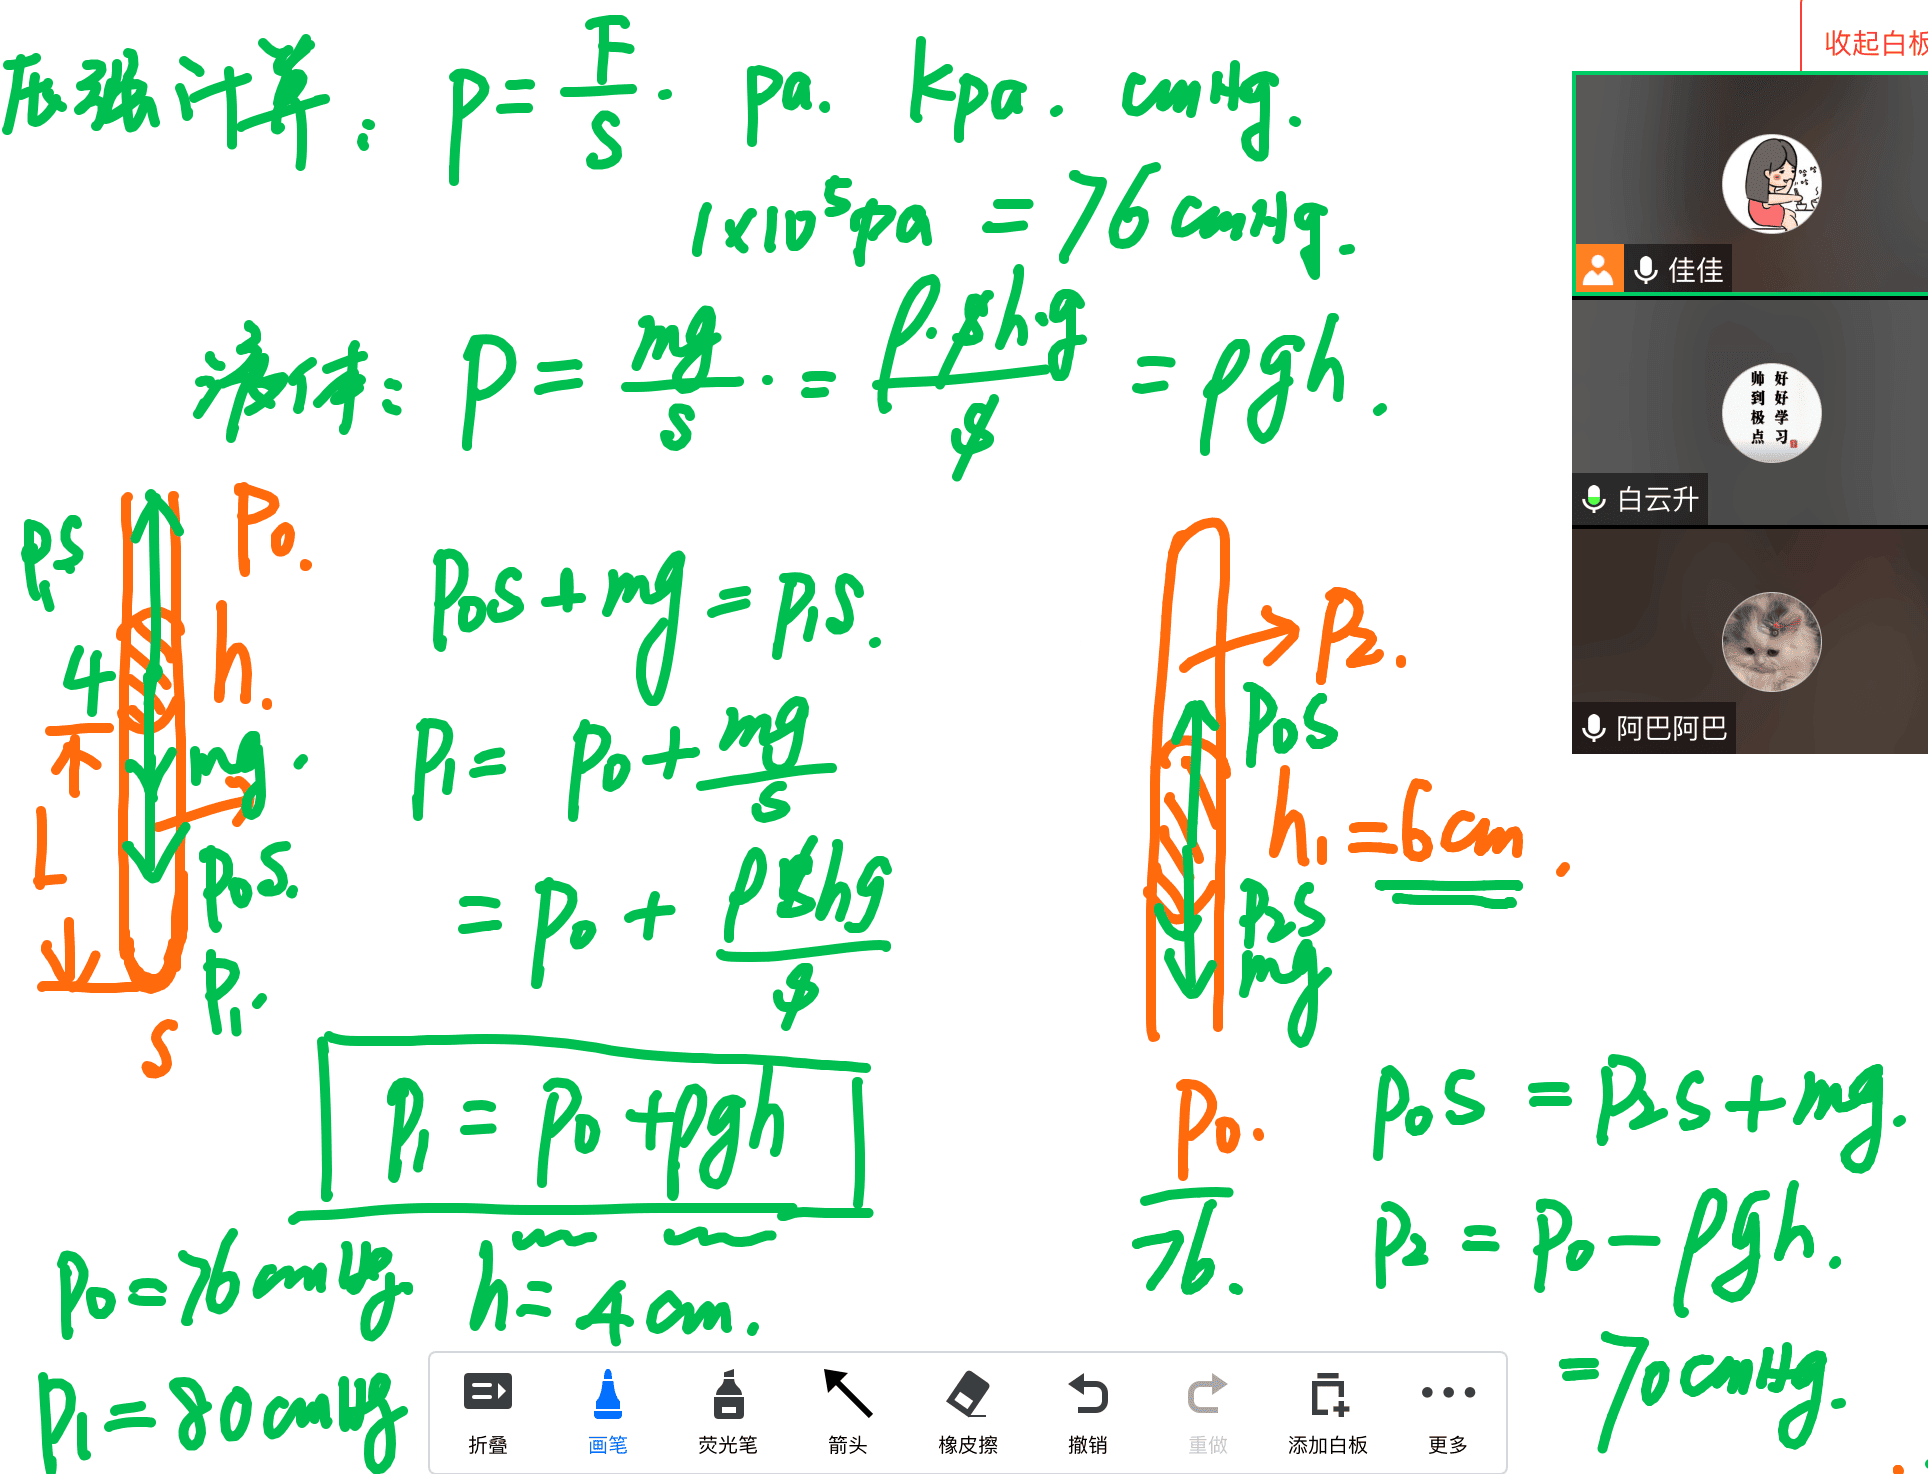 收起白板
压强计算: p = F/S . pa. kpa. cmHg.
1×10⁵pa = 76cmHg.
液体: p = mg/s . = ρ·sh·g/s = ρgh.
佳佳
好好学习
帅到极点
白云升
阿巴阿巴
p₁s
P₀.
h.
4
mg.
L
p₀s.
p₁.
S
p₀s + mg = p₁s.
p₁ = p₀ + mg/s
= p₀ + ρshg/s
p₁ = p₀ + ρgh
p₀ = 76cmHg h = 4cm.
p₁ = 80cmHg
P₂.
p₀s
h₁ = 6cm.
p₂s
mg
P₀.
76.
p₀s = p₂s + mg.
p₂ = p₀ − ρgh.
= 70cmHg.
折叠 画笔 荧光笔 箭头 橡皮擦 撤销 重做 添加白板 更多